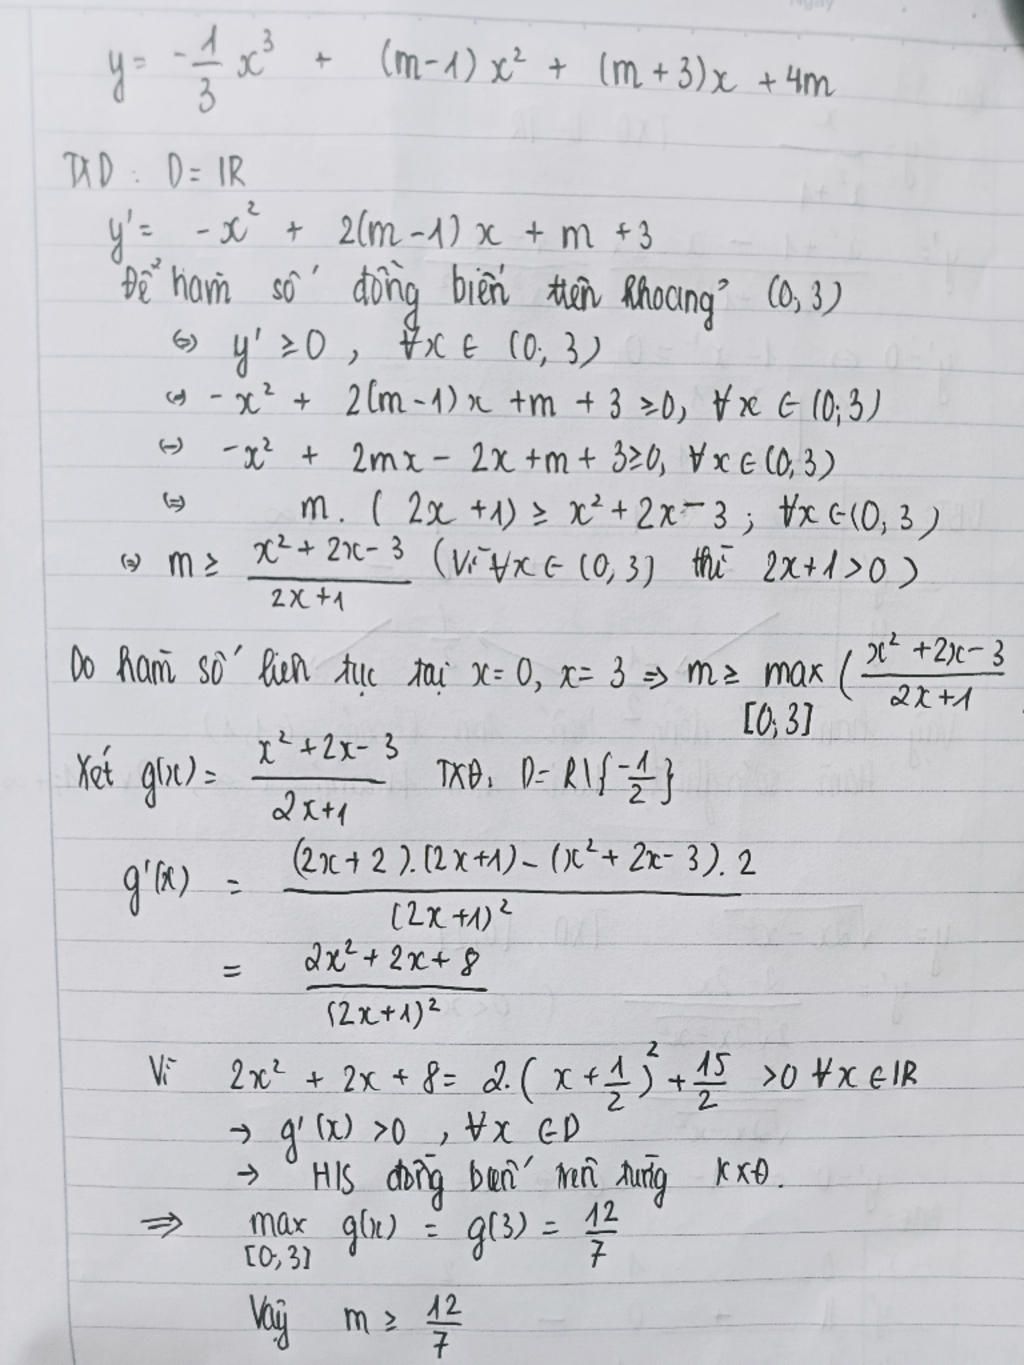 y = -1/3 x³ + (m-1)x² + (m+3)x + 4m
TXD : D = IR
y' = -x² + 2(m-1)x + m + 3
Để hàm số đồng biến trên khoảng (0; 3)
⇔ y' ≥ 0 , ∀x ∈ (0; 3)
⇔ -x² + 2(m-1)x + m + 3 ≥ 0, ∀x ∈ (0; 3)
⇔ -x² + 2mx - 2x + m + 3 ≥ 0, ∀x ∈ (0; 3)
⇔ m. (2x + 1) ≥ x² + 2x - 3 ; ∀x ∈ (0; 3)
⇔ m ≥ (x² + 2x - 3)/(2x + 1) (Vì ∀x ∈ (0; 3) thì 2x + 1 > 0)
Do hàm số liên tục tại x = 0, x = 3 ⇒ m ≥ max [0; 3] ((x² + 2x - 3)/(2x + 1)
Xét g(x) = (x² + 2x - 3)/(2x + 1) TXĐ: D = R\{-1/2}
g'(x) = ((2x + 2).(2x + 1) - (x² + 2x - 3). 2)/(2x + 1)²
= (2x² + 2x + 8)/(2x + 1)²
Vì 2x² + 2x + 8 = 2.(x + 1/2)² + 15/2 > 0 ∀x ∈ IR
→ g'(x) > 0 , ∀x ∈ D
→ H/S đồng biến trên từng KXĐ.
⇒ max [0; 3] g(x) = g(3) = 12/7
Vậy m ≥ 12/7